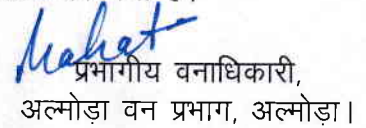 Mahat
प्रभागीय वनाधिकारी,
अल्मोड़ा वन प्रभाग, अल्मोड़ा।